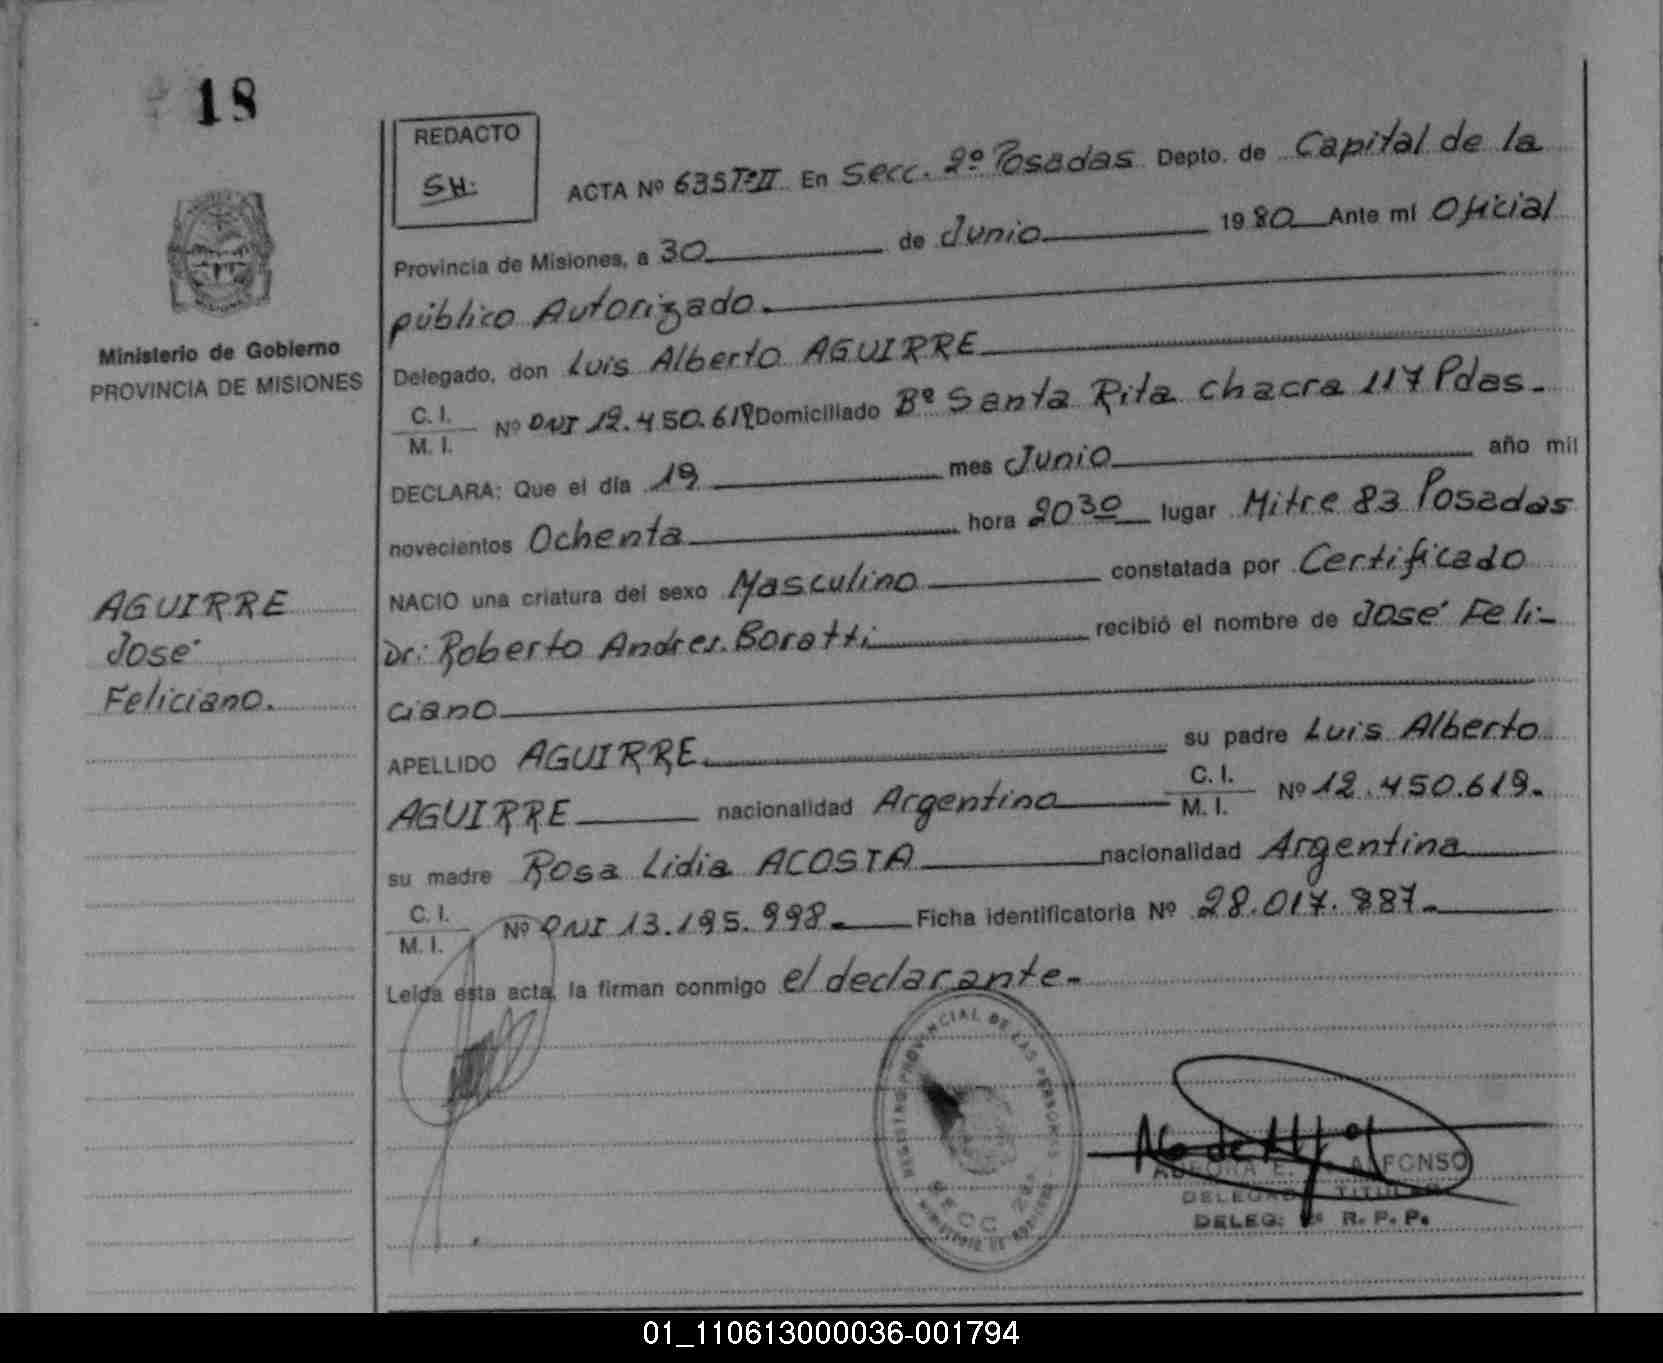 18
REDACTO
SH.
ACTA Nº 635 Tº II En Secc. 2º Posadas Depto. de Capital de la
Provincia de Misiones, a 30 de Junio 1980 Ante mí Oficial
público Autorizado.
Delegado, don Luis Alberto AGUIRRE
C. I.
M. I. Nº DNI 12.450.619 Domiciliado Bº Santa Rita chacra 117 Pdas.
DECLARA: Que el día 19 mes Junio año mil
novecientos Ochenta hora 20 30 lugar Mitre 83 Posadas
NACIO una criatura del sexo Masculino constatada por Certificado
Dr: Roberto Andres Boratti recibió el nombre de José Feli-
ciano
APELLIDO AGUIRRE su padre Luis Alberto
AGUIRRE nacionalidad Argentino C. I. M. I. Nº 12.450.619.
su madre Rosa Lidia ACOSTA nacionalidad Argentina
C. I.
M. I. Nº DNI 13.195.998. Ficha identificatoria Nº 28.017.887.
Leída esta acta, la firman conmigo el declarante.
Ministerio de Gobierno
PROVINCIA DE MISIONES
AGUIRRE
José
Feliciano.
REGISTRO PROVINCIAL DE LAS PERSONAS
SECC 2da.
AURORA E. ALFONSO
DELEGADA TITULAR
DELEG. 2ª R. P. P.
01_110613000036-001794